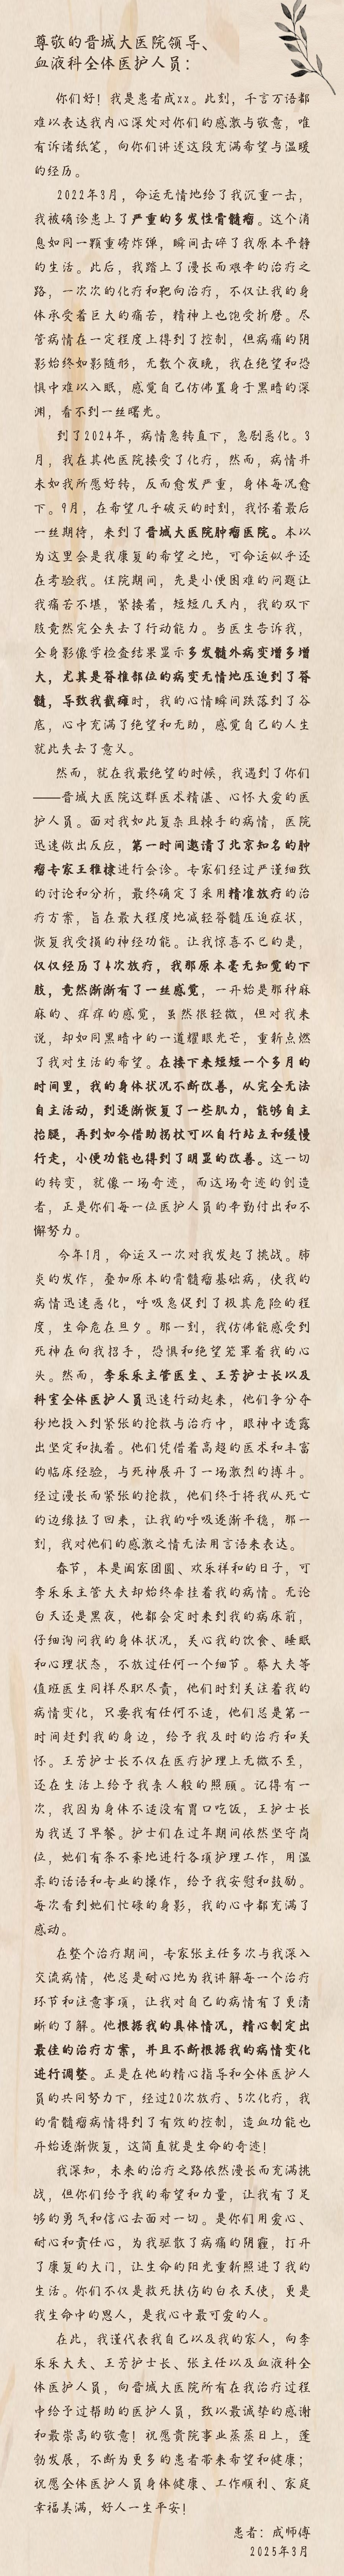 尊敬的晋城大医院领导、
血液科全体医护人员：
你们好！我是患者成xx。此刻，千言万语都
难以表达我内心深处对你们的感激与敬意，唯
有诉诸纸笔，向你们讲述这段充满希望与温暖
的经历。
2022年3月，命运无情地给了我沉重一击，
我被确诊患上了严重的多发性骨髓瘤。这个消
息如同一颗重磅炸弹，瞬间击碎了我原本平静
的生活。此后，我踏上了漫长而艰辛的治疗之
路，一次次的化疗和靶向治疗，不仅让我的身
体承受着巨大的痛苦，精神上也饱受折磨。尽
管病情在一定程度上得到了控制，但病痛的阴
影始终如影随形，无数个夜晚，我在绝望和恐
惧中难以入眠，感觉自己仿佛置身于黑暗的深
渊，看不到一丝曙光。
到了2024年，病情急转直下，急剧恶化。3
月，我在其他医院接受了化疗，然而，病情并
未如我所愿好转，反而愈发严重，身体每况愈
下。9月，在希望几乎破灭的时刻，我怀着最后
一丝期待，来到了晋城大医院肿瘤医院。本以
为这里会是我康复的希望之地，可命运似乎还
在考验我。住院期间，先是小便困难的问题让
我痛苦不堪，紧接着，短短几天内，我的双下
肢竟然完全失去了行动能力。当医生告诉我，
全身影像学检查结果显示多发髓外病变增多增
大，尤其是脊椎部位的病变无情地压迫到了脊
髓，导致我截瘫时，我的心情瞬间跌落到了谷
底，心中充满了绝望和无助，感觉自己的人生
就此失去了意义。
然而，就在我最绝望的时候，我遇到了你们
——晋城大医院这群医术精湛、心怀大爱的医
护人员。面对我如此复杂且棘手的病情，医院
迅速做出反应，第一时间邀请了北京知名的肿
瘤专家王雅棣进行会诊。专家们经过严谨细致
的讨论和分析，最终确定了采用精准放疗的治
疗方案，旨在最大程度地减轻脊髓压迫症状，
恢复我受损的神经功能。让我惊喜不已的是，
仅仅经历了4次放疗，我那原本毫无知觉的下
肢，竟然渐渐有了一丝感觉，一开始是那种麻
麻的、痒痒的感觉，虽然很轻微，但对我来
说，却如同黑暗中的一道耀眼光芒，重新点燃
了我对生活的希望。在接下来短短一个多月的
时间里，我的身体状况不断改善，从完全无法
自主活动，到逐渐恢复了一些肌力，能够自主
抬腿，再到如今借助拐杖可以自行站立和缓慢
行走，小便功能也得到了明显的改善。这一切
的转变，就像一场奇迹，而这场奇迹的创造
者，正是你们每一位医护人员的辛勤付出和不
懈努力。
今年1月，命运又一次对我发起了挑战。肺
炎的发作，叠加原本的骨髓瘤基础病，使我的
病情迅速恶化，呼吸急促到了极其危险的程
度，生命危在旦夕。那一刻，我仿佛能感受到
死神在向我招手，恐惧和绝望笼罩着我的心
头。然而，李乐乐主管医生、王芳护士长以及
科室全体医护人员迅速行动起来，他们争分夺
秒地投入到紧张的抢救与治疗中，眼神中透露
出坚定和执着。他们凭借着高超的医术和丰富
的临床经验，与死神展开了一场激烈的搏斗。
经过漫长而紧张的抢救，他们终于将我从死亡
的边缘拉了回来，让我的呼吸逐渐平稳，那一
刻，我对他们的感激之情无法用言语来表达。
春节，本是阖家团圆、欢乐祥和的日子，可
李乐乐主管大夫却始终牵挂着我的病情。无论
白天还是黑夜，他都会定时来到我的病床前，
仔细询问我的身体状况，关心我的饮食、睡眠
和心理状态，不放过任何一个细节。蔡大夫等
值班医生同样尽职尽责，他们时刻关注着我的
病情变化，只要我有任何不适，他们总是第一
时间赶到我的身边，给予我及时的治疗和关
怀。王芳护士长不仅在医疗护理上无微不至，
还在生活上给予我亲人般的照顾。记得有一
次，我因为身体不适没有胃口吃饭，王护士长
为我送了早餐。护士们在过年期间依然坚守岗
位，她们有条不紊地进行各项护理工作，用温
柔的话语和专业的操作，给予我安慰和鼓励。
每次看到她们忙碌的身影，我的心中都充满了
感动。
在整个治疗期间，专家张主任多次与我深入
交流病情，他总是耐心地为我讲解每一个治疗
环节和注意事项，让我对自己的病情有了更清
晰的了解。他根据我的具体情况，精心制定出
最佳的治疗方案，并且不断根据我的病情变化
进行调整。正是在他的精心指导和全体医护人
员的共同努力下，经过20次放疗、5次化疗，我
的骨髓瘤病情得到了有效的控制，造血功能也
开始逐渐恢复，这简直就是生命的奇迹！
我深知，未来的治疗之路依然漫长而充满挑
战，但你们给予我的希望和力量，让我有了足
够的勇气和信心去面对一切。是你们用爱心、
耐心和责任心，为我驱散了病痛的阴霾，打开
了康复的大门，让生命的阳光重新照进了我的
生活。你们不仅是救死扶伤的白衣天使，更是
我生命中的恩人，是我心中最可爱的人。
在此，我谨代表我自己以及我的家人，向李
乐乐大夫、王芳护士长、张主任以及血液科全
体医护人员，向晋城大医院所有在我治疗过程
中给予过帮助的医护人员，致以最诚挚的感谢
和最崇高的敬意！祝愿贵院事业蒸蒸日上，蓬
勃发展，不断为更多的患者带来希望和健康；
祝愿全体医护人员身体健康、工作顺利、家庭
幸福美满，好人一生平安！
患者：成师傅
2025年3月